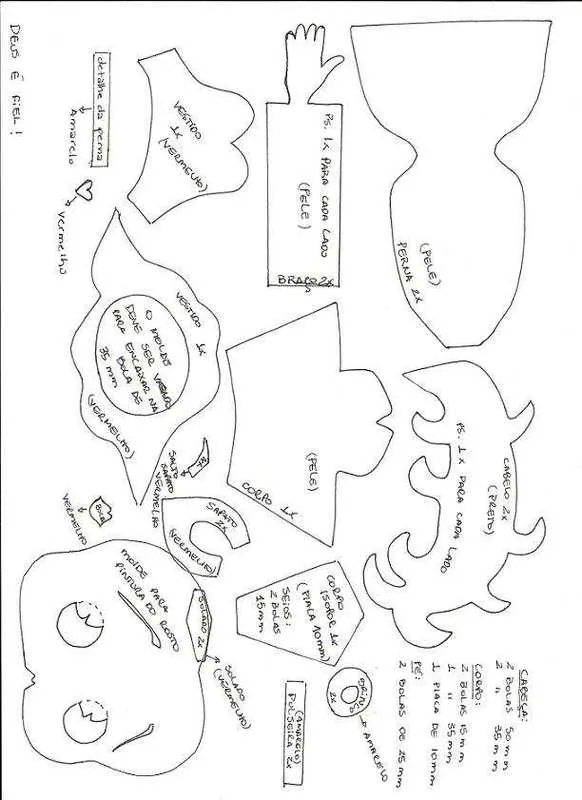 DEUS É FIEL!
detalhe da perna
Amarelo
vermelho
VESTIDO
1X
(VERMELHO)
PS. 1X PARA CADA LADO
(PELE)
BRAÇO 2X
(PELE)
PERNA 2X
VESTIDO 1X
O MOLDE
DEVE SER VAZADO
PARA ENCAIXAR NA
BOLA DE
35 mm
(VERMELHO)
(PELE)
CORPO 1X
CABELO 2X
(PRETO)
PS. 1X PARA CADA LADO
SALTO
SAPATO
VERMELHO
2X
SAPATO
2X
(VERMELHO)
BOCA
VERMELHO
MOLDE PARA
PINTURA DO ROSTO
SOLADO 2X
SOLADO
(VERMELHO)
CORPO
ISOPOR 1X
(PLACA 10mm)
SEIOS:
2 BOLAS
15mm
(AMARELO)
PULSEIRA 2X
BRINCO
2X
AMARELO
CABEÇA:
2 BOLAS 50mm
2 " 35mm
CORPO:
2 BOLAS 15mm
1 " 35mm
1 PLACA DE 10mm
PÉ:
2 BOLAS DE 25mm